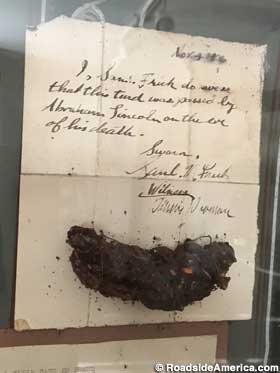 Nov
I, Sam'l Frick do swear
that this turd was passed by
Abraham Lincoln on the eve
of his death.
Sworn,
Sam'l Frick
Witness
© RoadsideAmerica.com